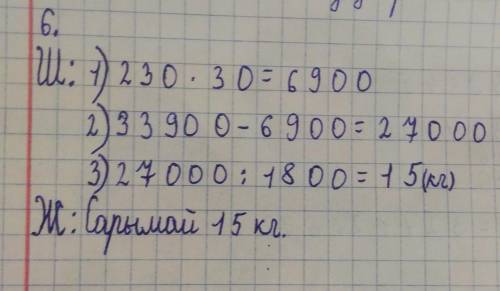 6.
Ш: 1) 230 · 30 = 6900
2) 33900 - 6900 = 27000
3) 27000 : 1800 = 15(кг)
Ж: Сарымай 15 кг.